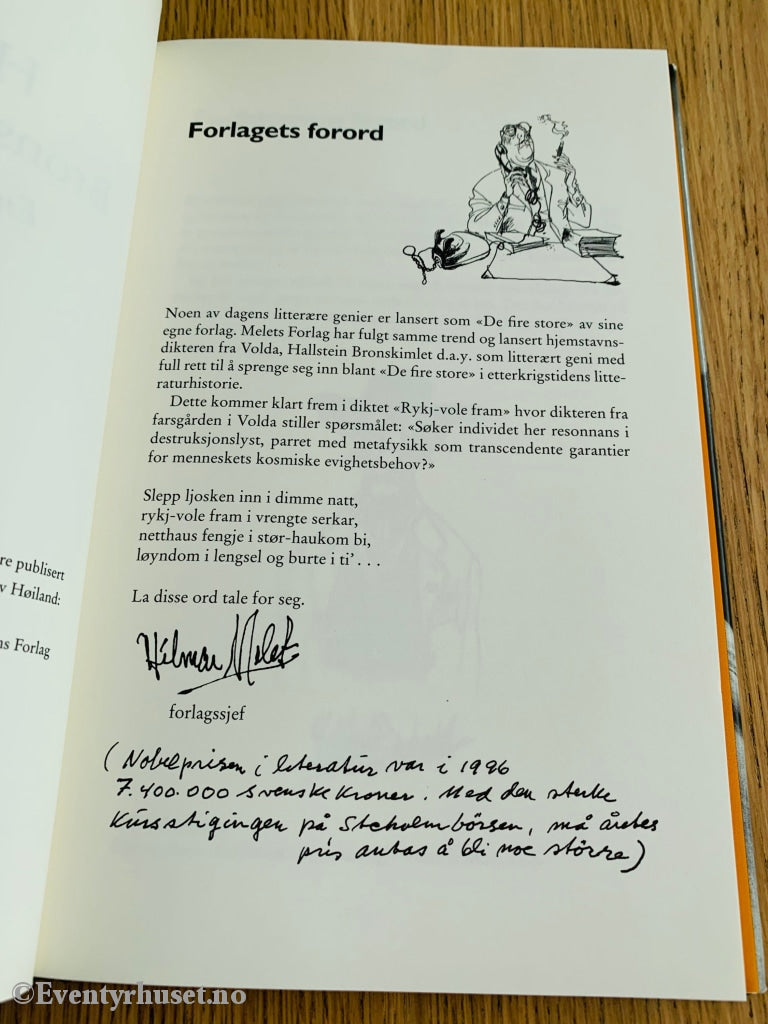 re publisert
v Høiland:
ns Forlag
Forlagets forord
Noen av dagens litterære genier er lansert som «De fire store» av sine
egne forlag. Melets Forlag har fulgt samme trend og lansert hjemstavns-
dikteren fra Volda, Hallstein Bronskimlet d.a.y. som litterært geni med
full rett til å sprenge seg inn blant «De fire store» i etterkrigstidens litte-
raturhistorie.
Dette kommer klart frem i diktet «Rykj-vole fram» hvor dikteren fra
farsgården i Volda stiller spørsmålet: «Søker individet her resonnans i
destruksjonslyst, parret med metafysikk som transcendente garantier
for menneskets kosmiske evighetsbehov?»
Slepp ljosken inn i dimme natt,
rykj-vole fram i vrengte serkar,
netthaus fengje i stør-haukom bi,
løyndom i lengsel og burte i ti' . . .
La disse ord tale for seg.
Hilmar Melet
forlagssjef
(Nobelprisen i literatur var i 1996
7.400.000 svenske kroner. Med den sterke
kursstigingen på Stckholmbörsen, må årets
pris antas å bli noe större)
©Eventyrhuset.no